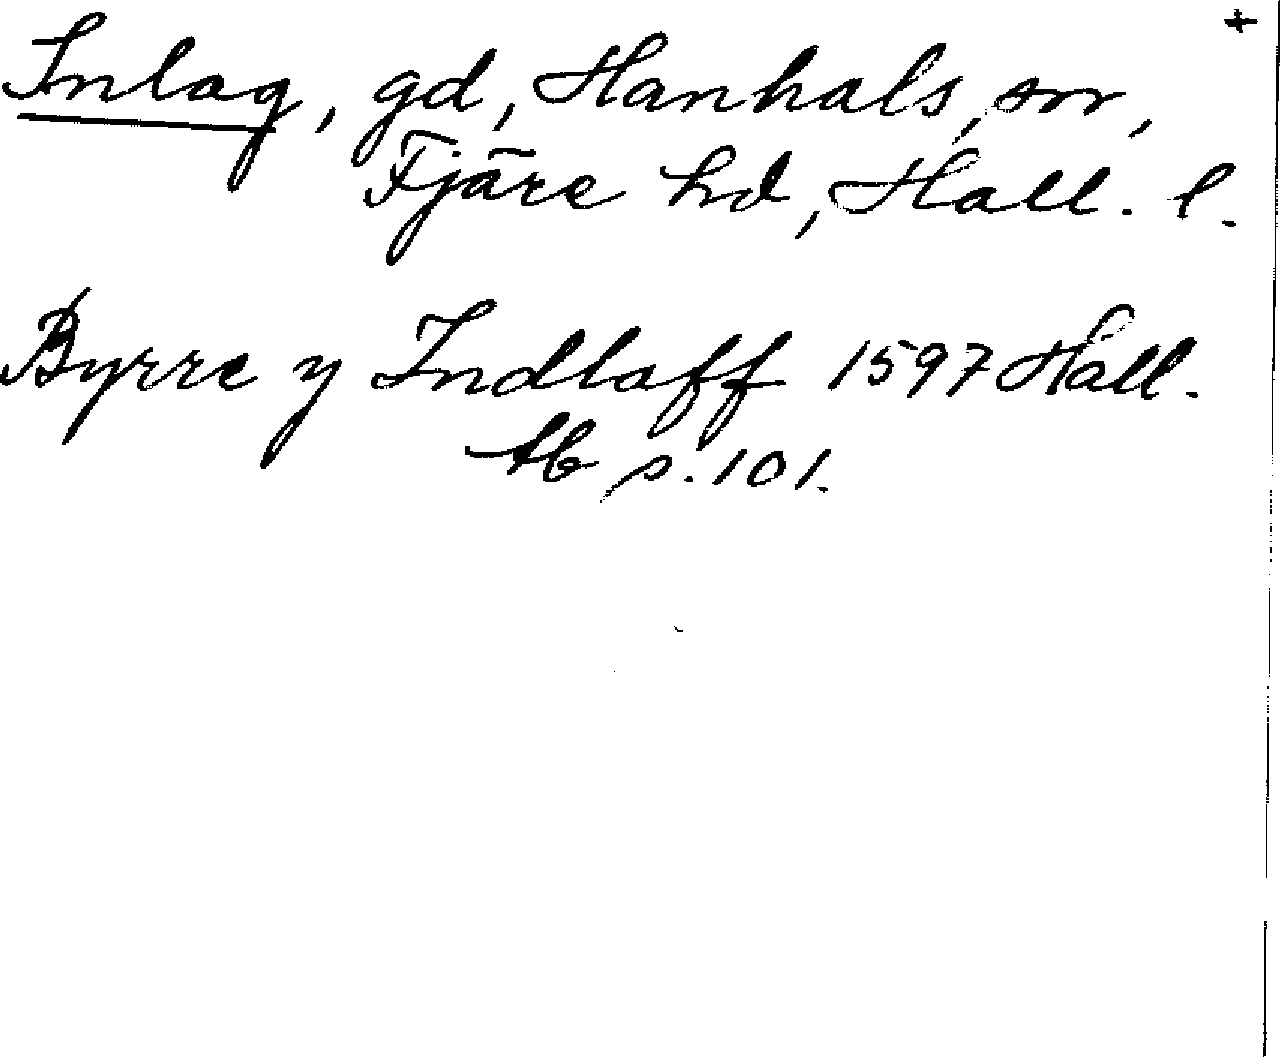 +
Inlag, gd, Hanhals, sn,
Fjäre hd, Hall. l.
Byrre y Indlaff 1597 Hall.
Ab s. 101.